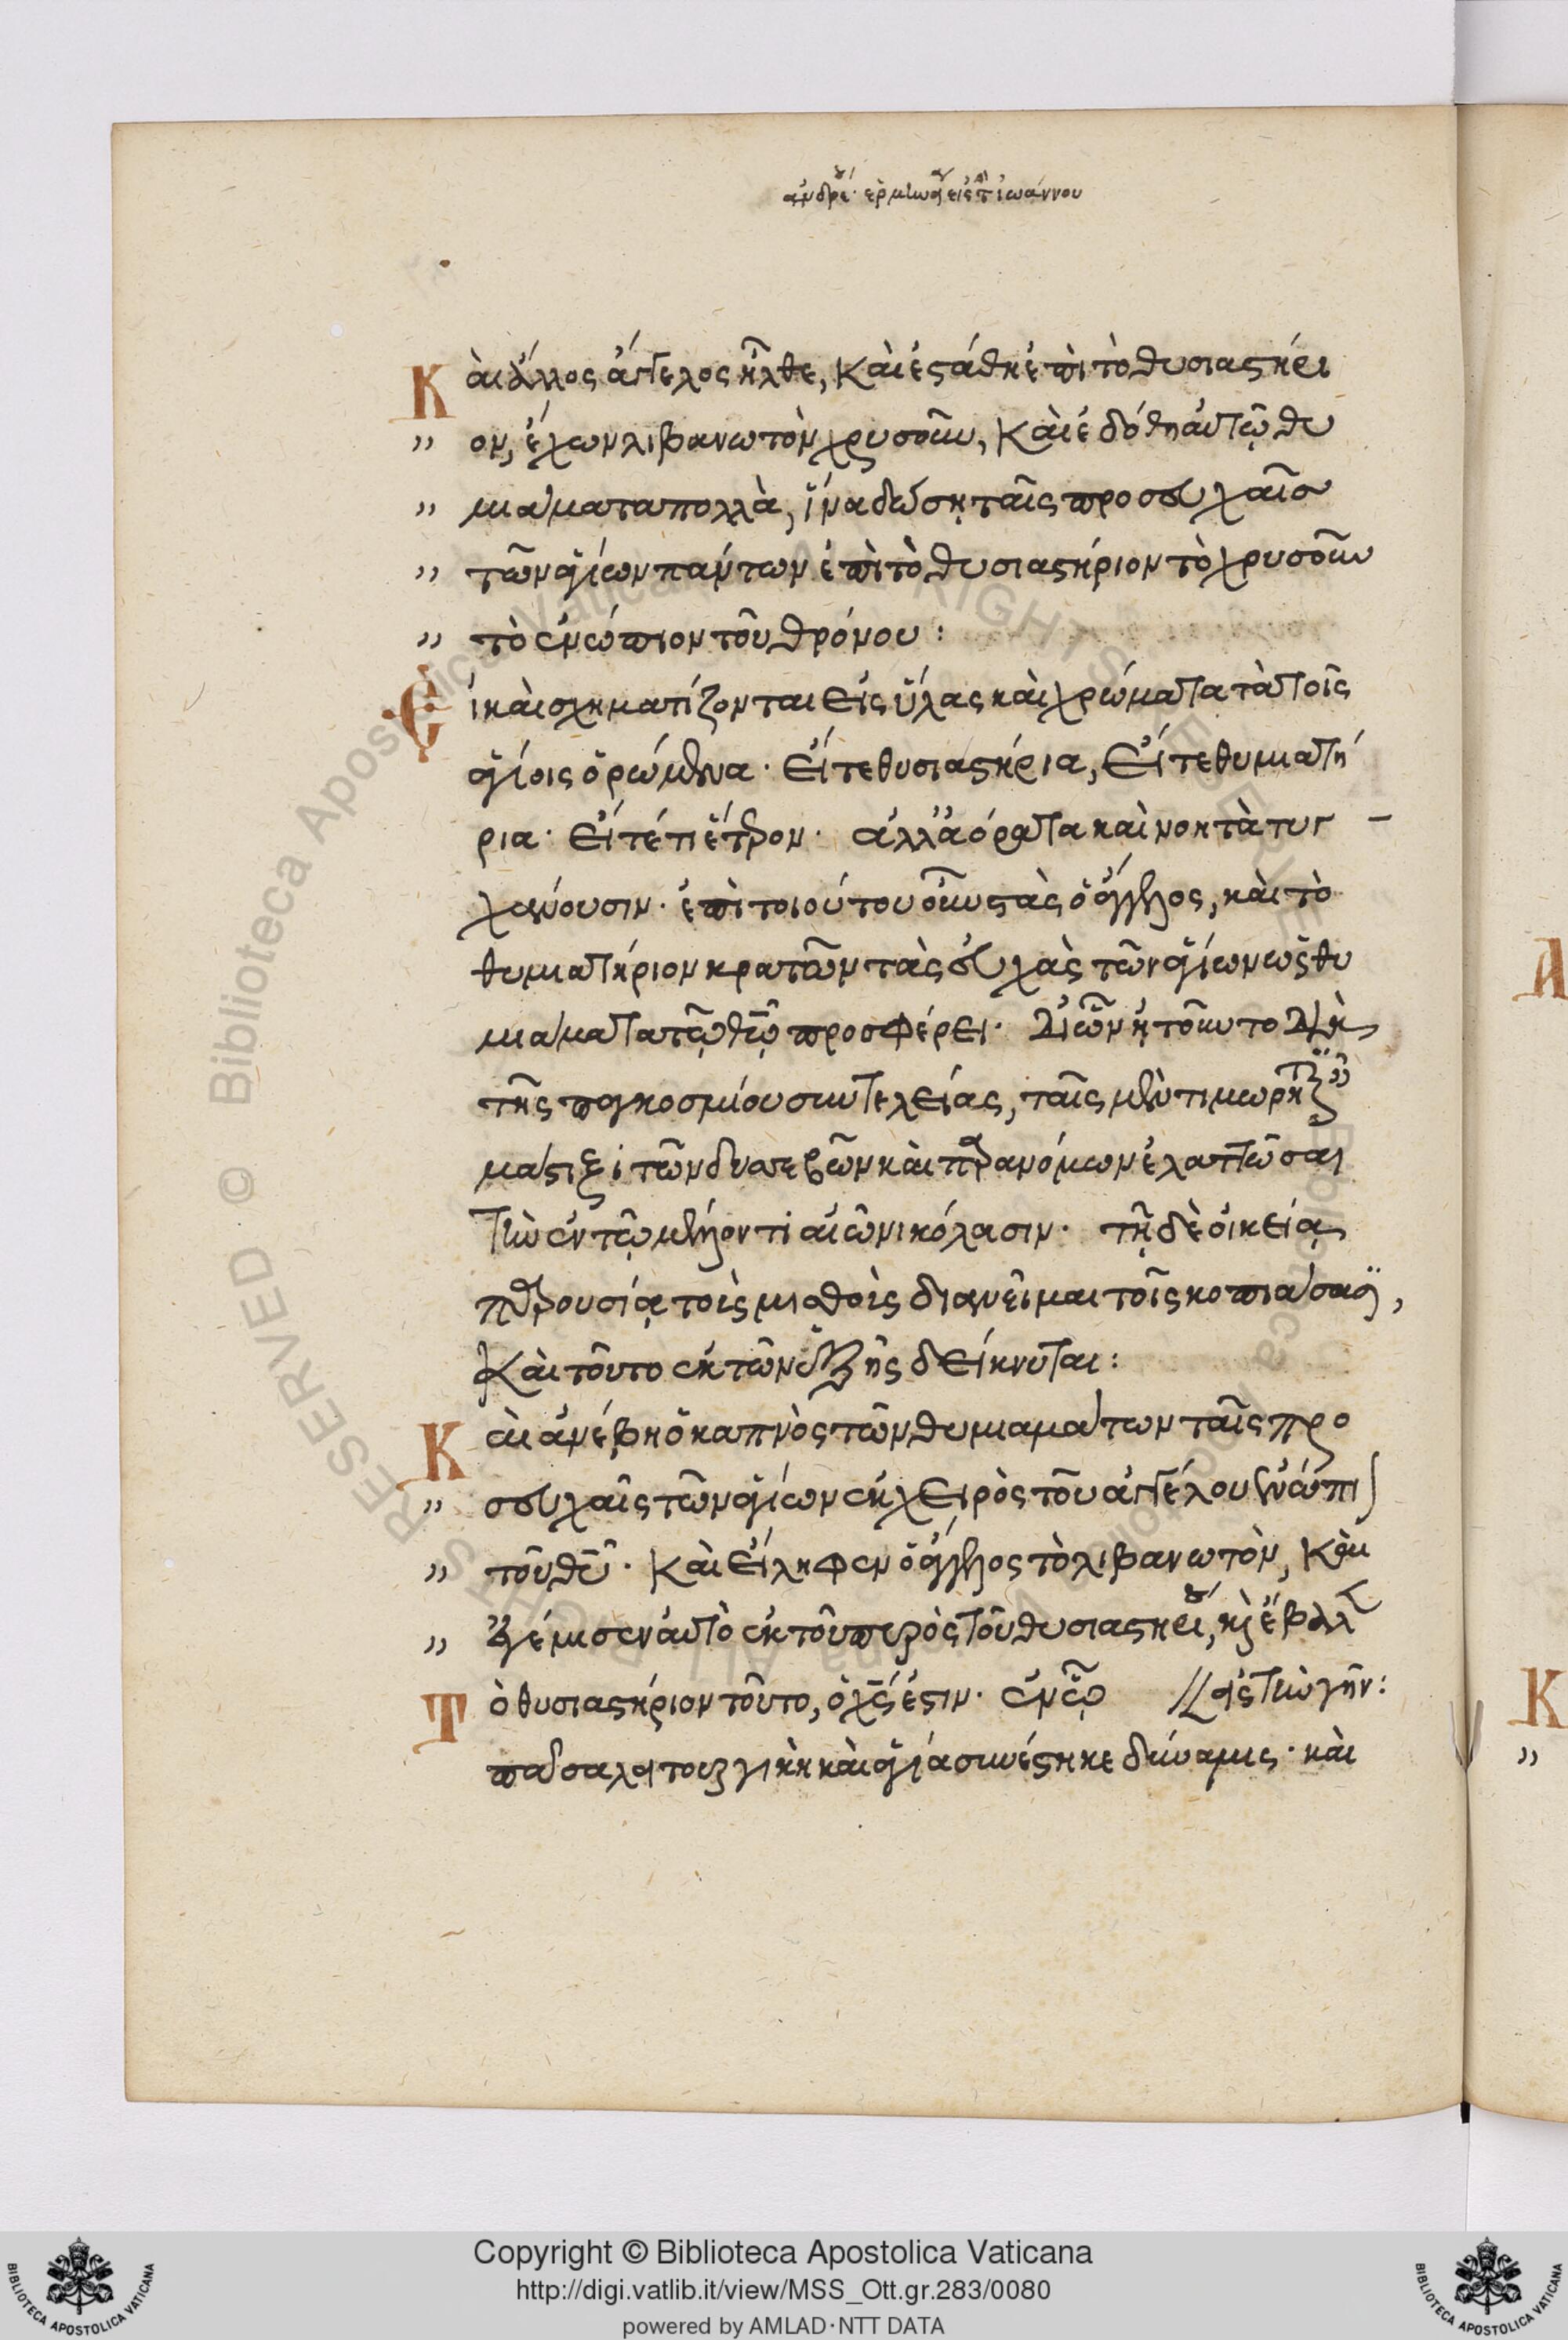 ἀνδρέου ἑρμηνεία εἰς τὴν ἰωάννου
Καὶ ἄλλος ἄγγελος ἦλθε, καὶ ἐστάθη ἐπὶ τὸ θυσιαστήρι
" ον, ἔχων λιβανωτὸν χρυσοῦν, καὶ ἐδόθη αὐτῷ θυ
" μιάματα πολλὰ, ἵνα δώσῃ ταῖς προσευχαῖσ
" τῶν ἁγίων πάντων ἐπὶ τὸ θυσιαστήριον τὸ χρυσοῦν
" τὸ ἐνώπιον τοῦ θρόνου :
Εἰ καὶ σχηματίζονται εἰς ὕλας καὶ χρώματα τὰ τοῖς
ἁγίοις ὁρώμενα · εἴτε θυσιαστήρια, εἴτε θυμιατή
ρια · εἴτέ τι ἕτερον · ἀλλ' ἀόρατα καὶ νοητὰ τυγ –
χάνουσιν · ἐπὶ τοιούτου οὖν στὰς ὁ ἄγγελος, καὶ τὸ
θυμιατήριον κρατῶν τὰς εὐχὰς τῶν ἁγίων ὡς θυ
μιάματα τῷ θῷ προσφέρει · δι' ὧν ᾐτοῦντο διὰ
τῆς παγκοσμίου συντελείας, ταῖς μὲν τιμωρητικαῖς
μάστιξι τῶν δυσσεβῶν καὶ παρανόμων ἐλαττῶσαι
τὴν ἐν τῷ μέλλοντι αἰῶνι κόλασιν · τῇ δὲ οἰκείᾳ
παρουσίᾳ τοὺς μισθοὺς διανεῖμαι τοῖς κοπιάσασι,
καὶ τοῦτο ἐκ τῶν ἑξῆς δείκνυται :
Καὶ ἀνέβη ὁ καπνὸς τῶν θυμιαμάτων ταῖς προ
" σευχαῖς τῶν ἁγίων ἐκ χειρὸς τοῦ ἀγγέλου ἐνώπιον
" τοῦ θῦ · καὶ εἴληφεν ὁ ἄγγελος τὸ λιβανωτὸν, καὶ
" ἐγέμισεν αὐτὸ ἐκ τοῦ πυρὸς τοῦ θυσιαστηρίου, κὶ ἔβαλε
Τὸ θυσιαστήριον τοῦτο, ὁ χς ἐστιν · ἐν ᾧ // εἰς τὴν γῆν :
πᾶσα λειτουργικὴ καὶ ἁγία συνέστηκε δύναμις · καὶ
Copyright © Biblioteca Apostolica Vaticana
http://digi.vatlib.it/view/MSS_Ott.gr.283/0080
powered by AMLAD·NTT DATA